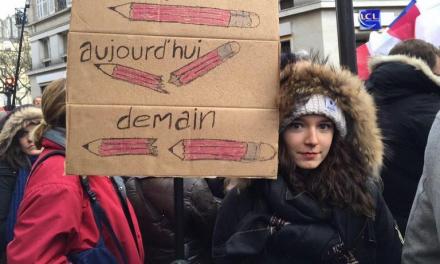 aujourd'hui
demain
LCL